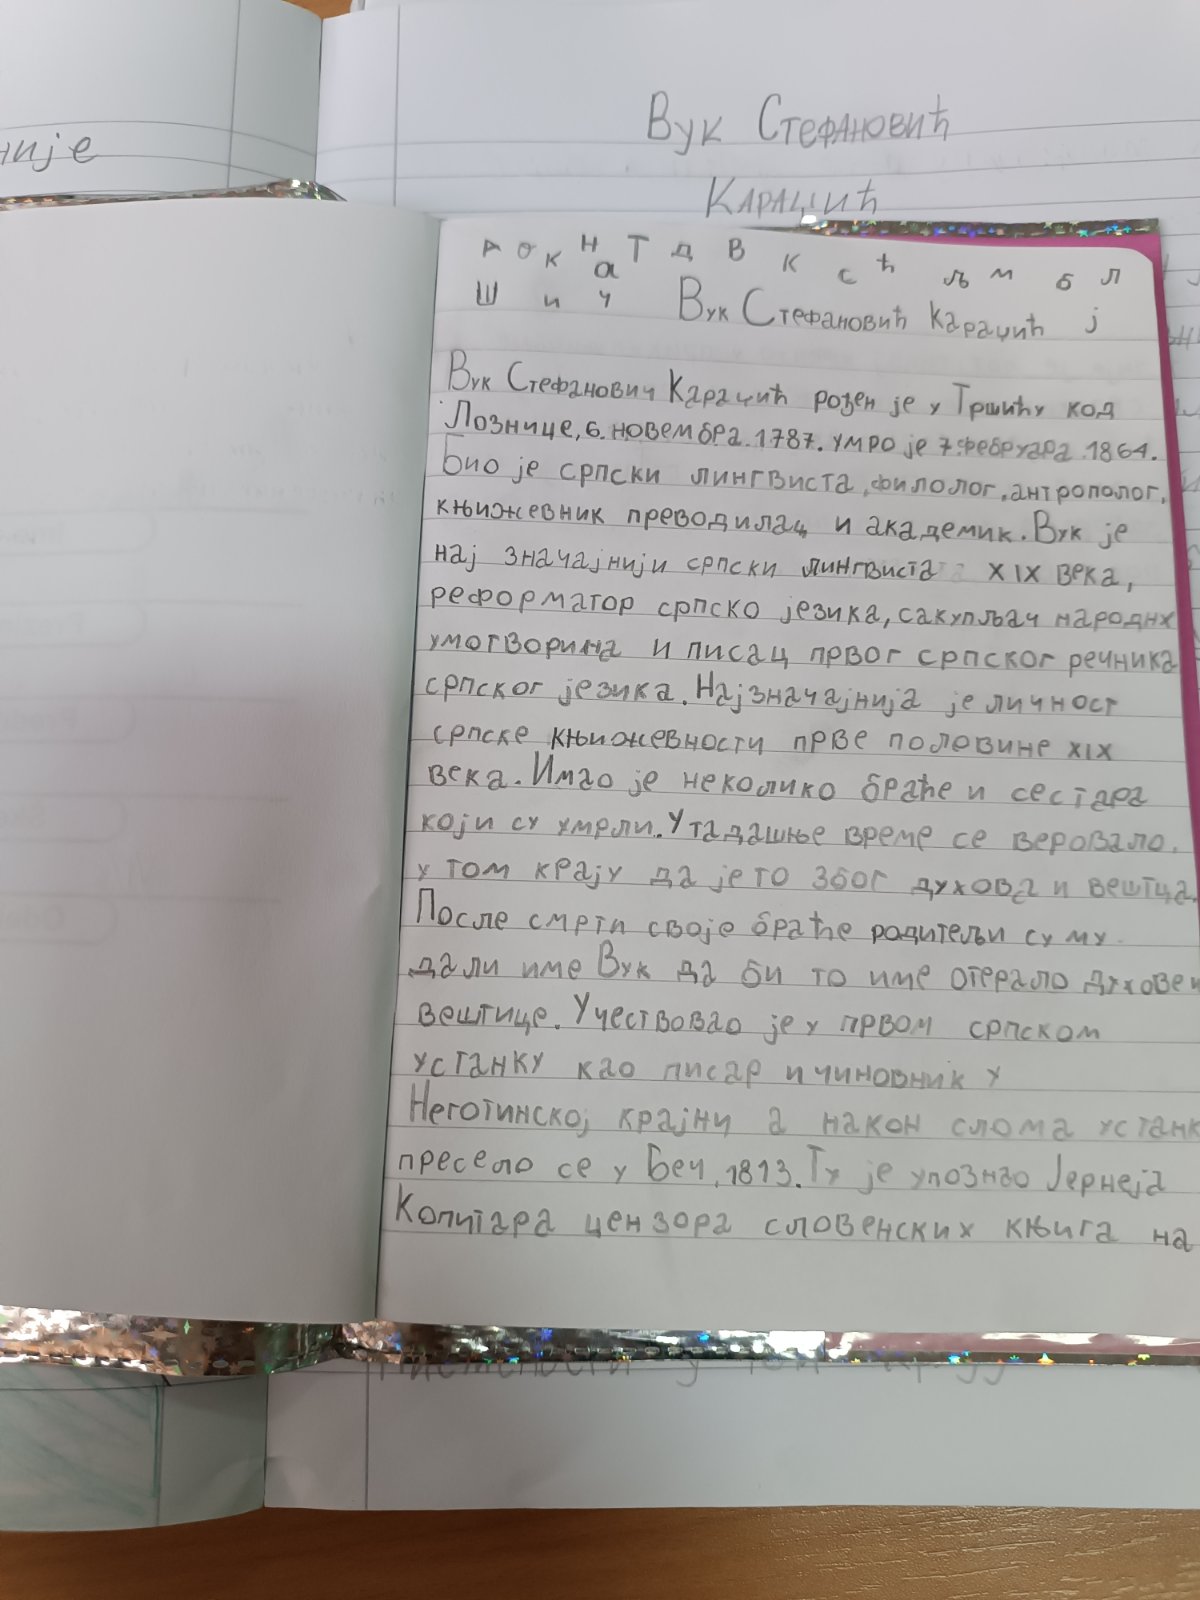 није
Вук Стефановић
Караџић
А О К Н Т Д В К С Ћ Љ М Б Л
а
Ш И Ч Вук Стефановић Караџић Ј
Вук Стефанович Караџић рођен је у Тршићу код
Лознице, 6. новембра. 1787. умро је 7. фебруара. 1864.
Био је српски лингвиста, филолог, антрополог,
књижевник преводилац и академик. Вук је
нај значајнији српски лингвиста XIX века,
реформатор српско језика, сакупљач народнх
умотворина и писац првог српског речника
српског језика. Најзначајнија је личност
српске књижевности прве половине XIX
века. Имао је неколико браће и сестара
који су умрли. У тадашње време се веровало.
у том крају да је то због духова и вештца.
После смрти своје браће родитељи су му
дали име Вук да би то име отерало духове и
вештице. Учествовао је у првом српском
устанку као писар и чиновник у
Неготинској крајни а након слома устанк
пресело се у Беч, 1813. Ту је упознао Јернеја
Копитара цензора словенских књига на